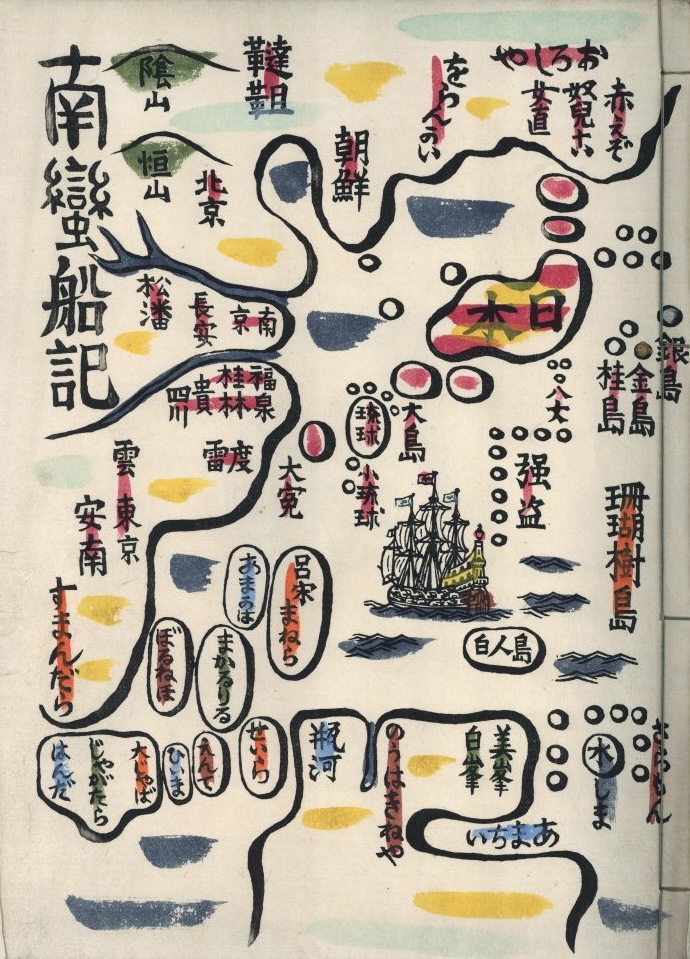 南蠻船記
陰山
恒山
北京
韃靼
朝鮮
をらんかい
おろしや
女直
奴児干
赤えぞ
松潘
長安
南京
福泉
桂林
貴
四川
雷度
雲
東京
安南
大寃
日本
大島
琉球
小琉球
八丈
强盗
銀島
金島
桂島
珊瑚樹島
白人島
すまんだら
あまかは
呂宋まねら
ぼるねほ
まかるりる
せいらん
ゑんで
ひま
大じやば
じやがたら
はんだ
瓶河
のうはきねや
白峯
美峯
あまちい

水しま